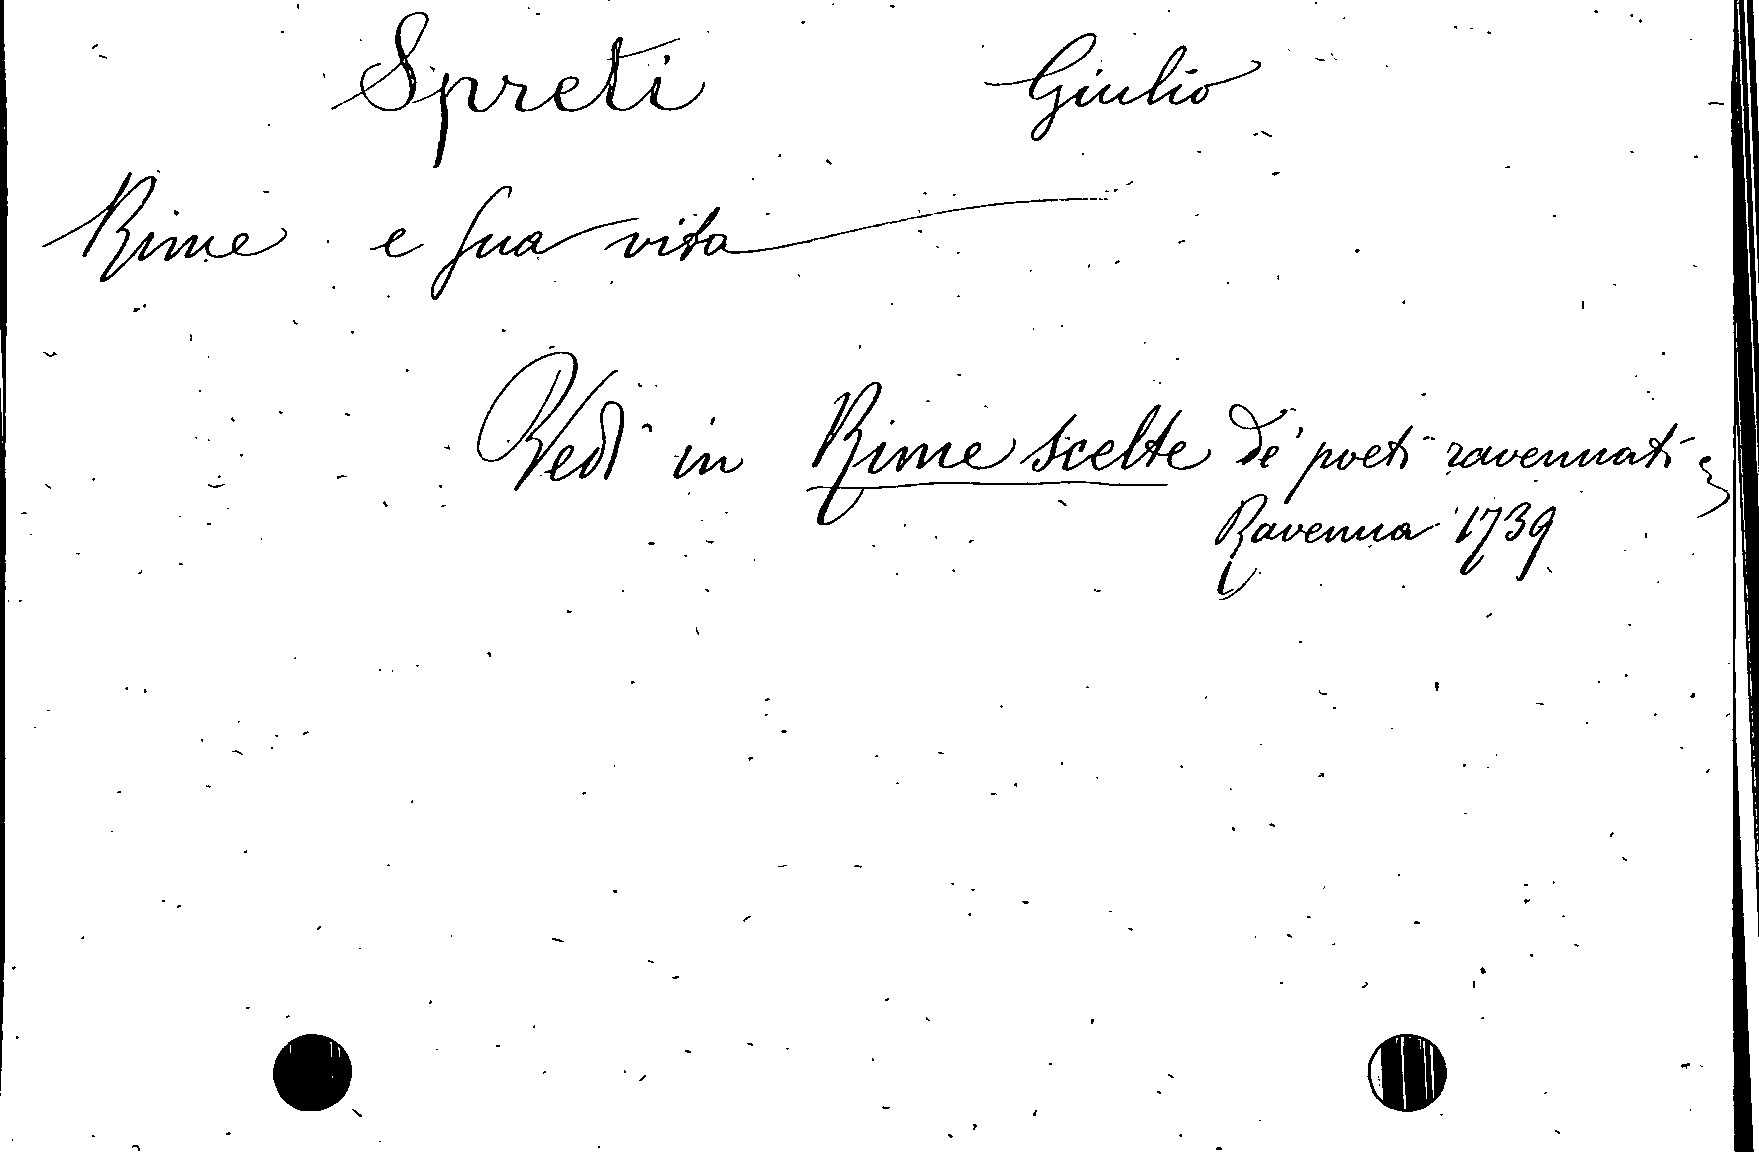 Spreti Giulio
Rime e sua vita
Vedi in Rime scelte de' poeti ravennati
Ravenna 1739